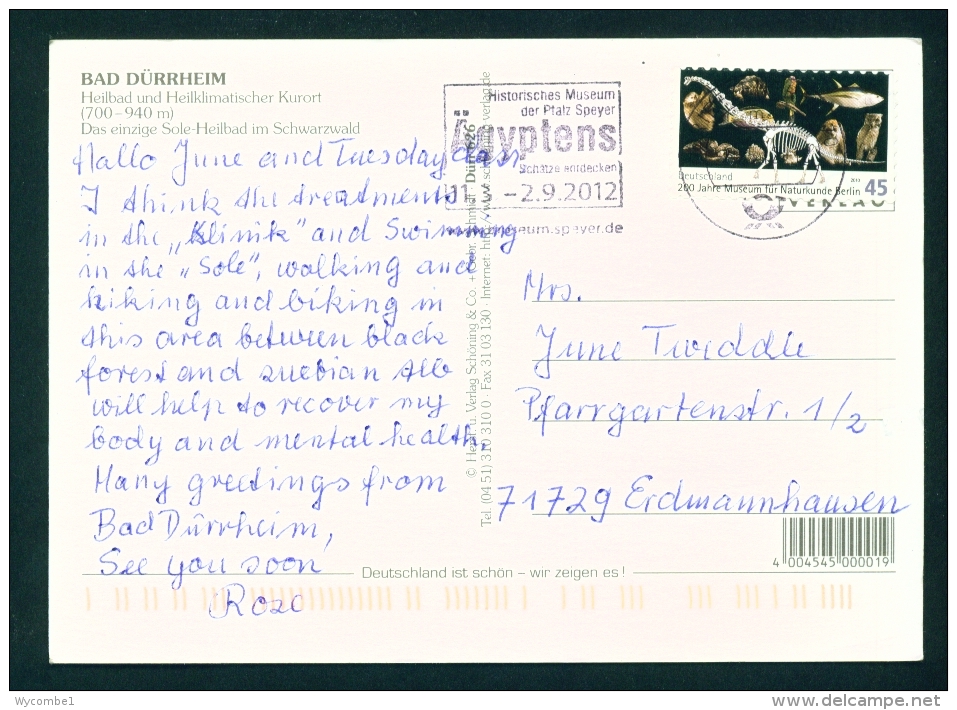 BAD DÜRRHEIM
Heilbad und Heilklimatischer Kurort
(700–940 m)
Das einzige Sole-Heilbad im Schwarzwald
Hallo June and Tuesdayclass,
I think the treatments
in the „Klinik" and Swimming
in the „Sole", walking and
hiking and biking in
this area between black
forest and suebian Alb
will help to recover my
body and mental health.
Many greetings from
Bad Dürrheim,
See you soon
Rose
Historisches Museum
der Pfalz Speyer
Ägyptens
Schätze entdecken
–2.9.2012
museum.speyer.de
Deutschland
200 Jahre Museum für Naturkunde Berlin 45
VERLAG
© Heinr. u. Verlag Schöning & Co. + Gebr. Schmidt · Dürr 626
Tel. (04 51) 310 310 0 · Fax 31 03 130 · Internet: http://www.schoening-verlag.de
Mrs.
June Tweddle
Pfarrgartenstr. 1/2
71729 Erdmannhausen
4 004545 000019
Deutschland ist schön – wir zeigen es!
Wycombe1
www.delcampe.net